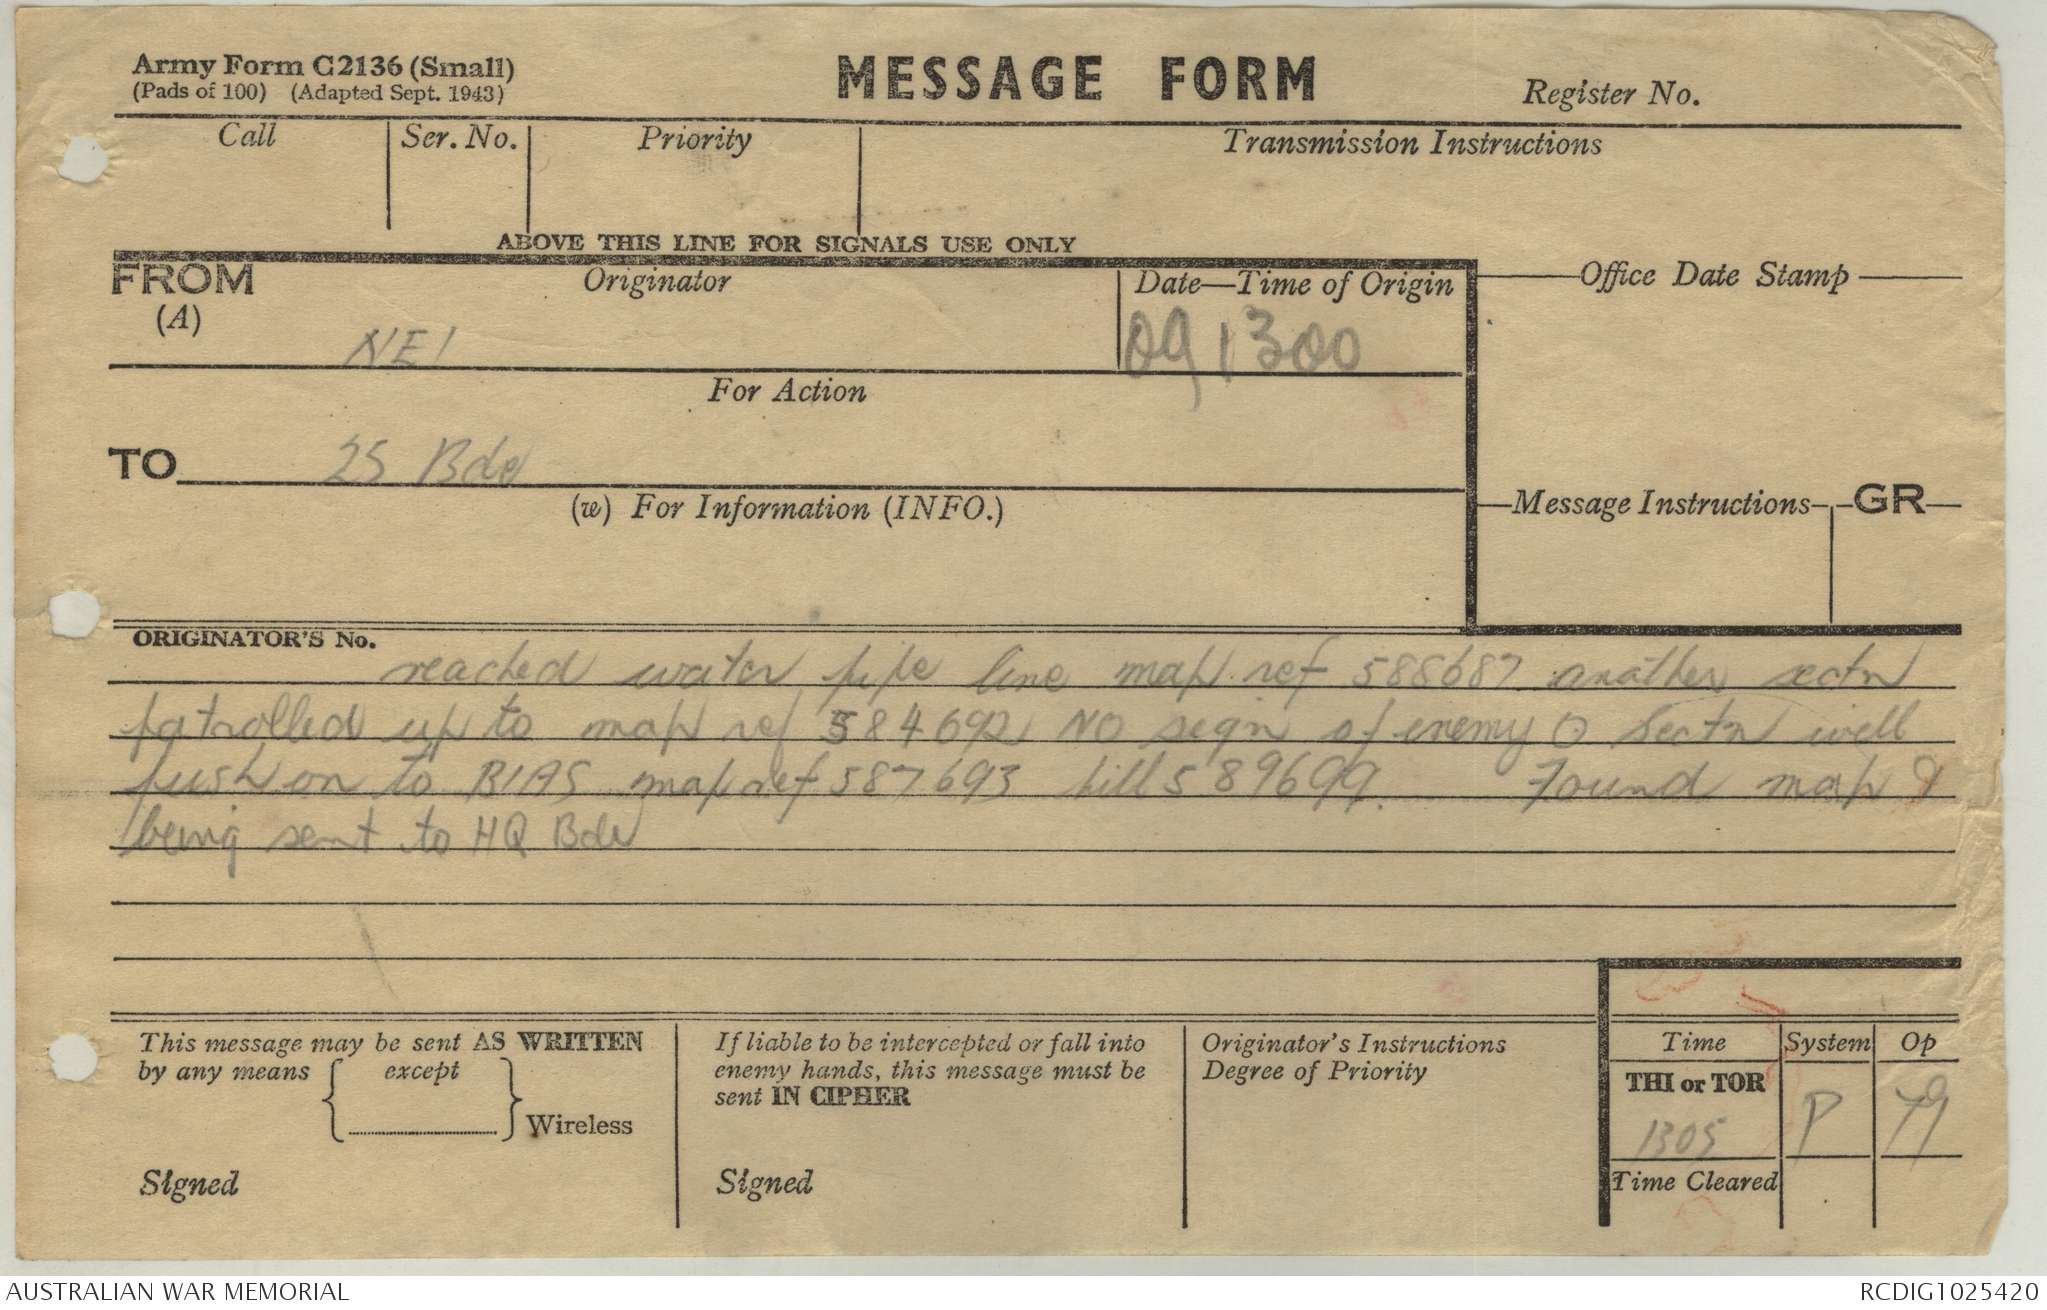 Army Form C2136 (Small)
(Pads of 100) (Adapted Sept. 1943)
MESSAGE FORM
Register No.
Call
Ser. No.
Priority
Transmission Instructions
ABOVE THIS LINE FOR SIGNALS USE ONLY
FROM
(A)
Originator
NEI
Date—Time of Origin
091300
Office Date Stamp
For Action
TO
25 Bde
(w) For Information (INFO.)
Message Instructions
GR
ORIGINATOR'S No.
reached water pipe line map ref 588687 another sectn
patrolled up to map ref 584692 NO segn of enemy O Sectn well
push on to BIAS map ref 587693 hill 589699. Found map &
being sent to HQ Bde
This message may be sent AS WRITTEN
by any means except
Wireless
Signed
If liable to be intercepted or fall into
enemy hands, this message must be
sent IN CIPHER
Signed
Originator's Instructions
Degree of Priority
Time
System
Op
THI or TOR
1305
P
79
Time Cleared
AUSTRALIAN WAR MEMORIAL
RCDIG1025420